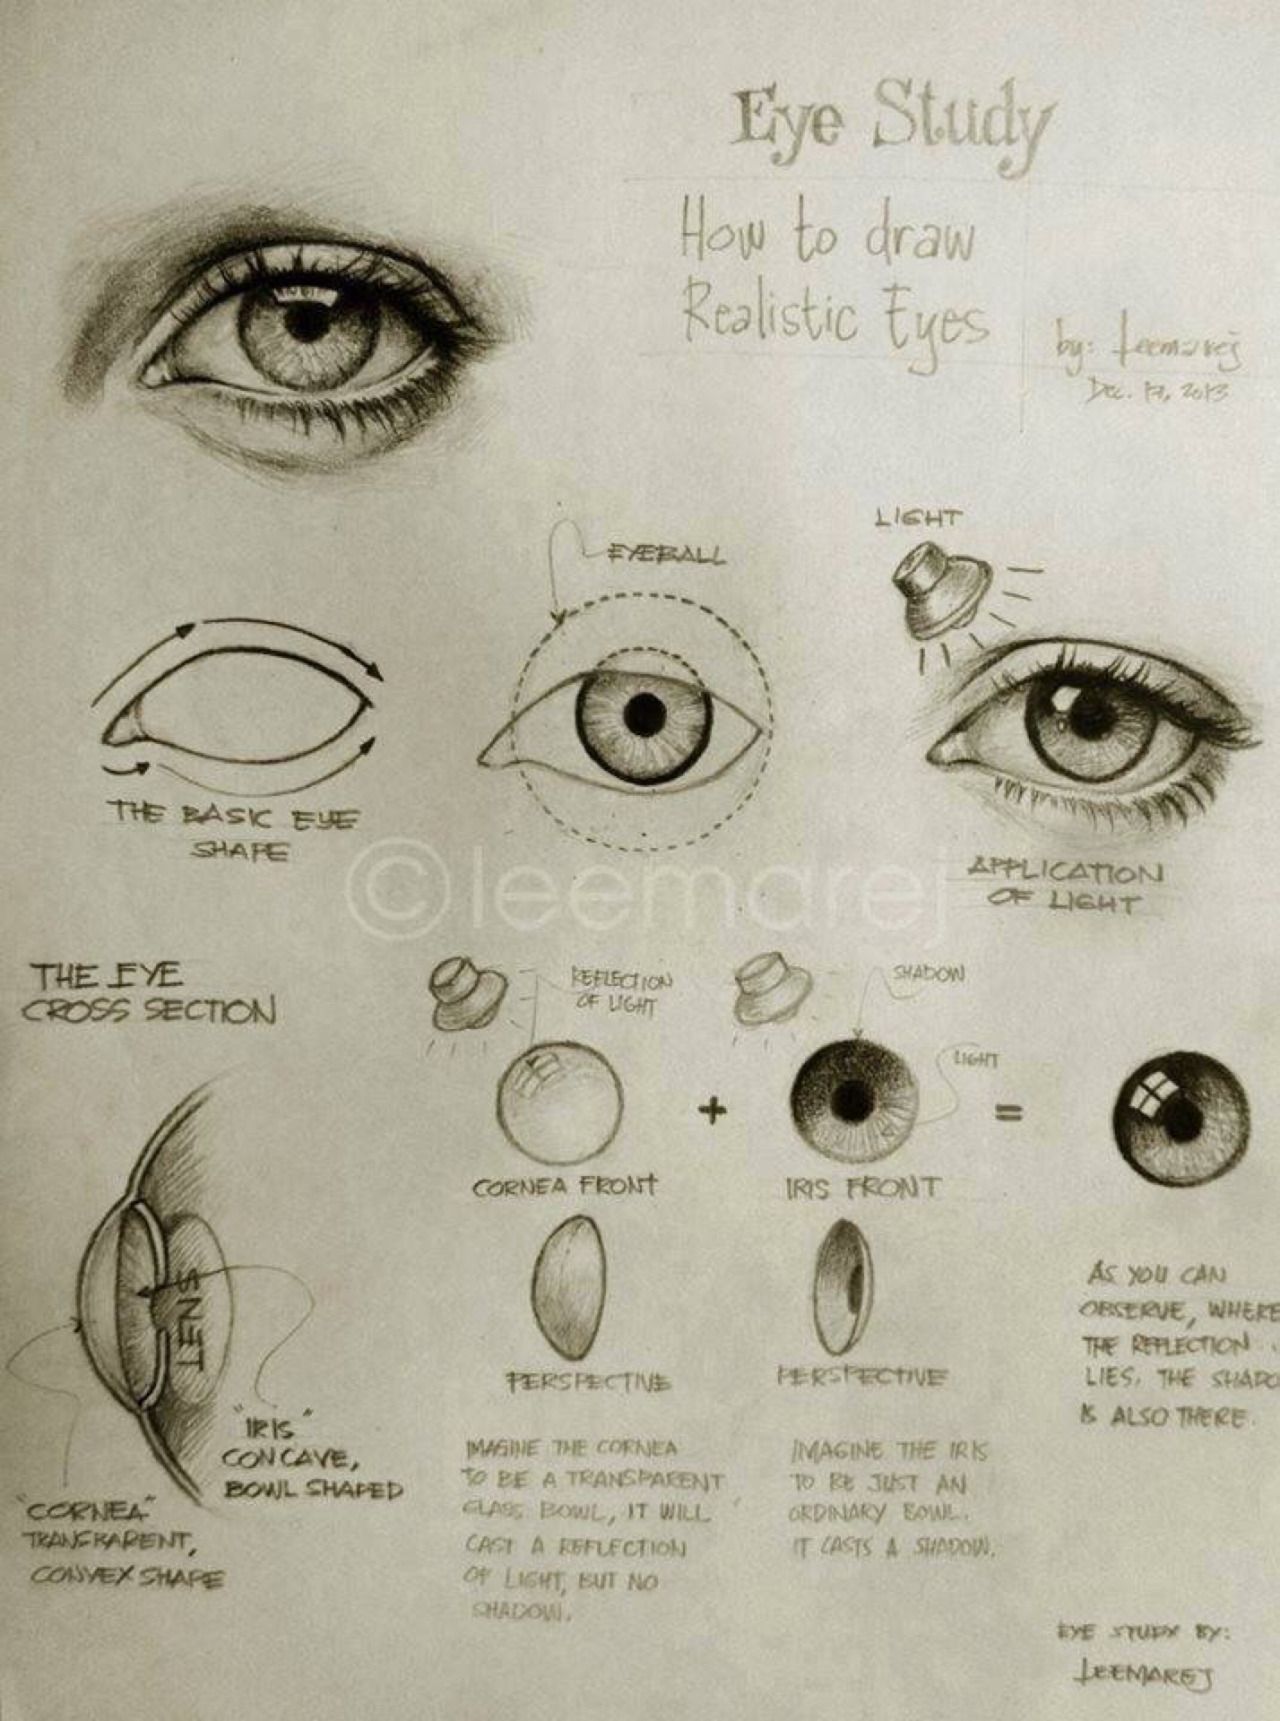 Eye Study
How to draw
Realistic Eyes
by: Leemarej
Dec. 17, 2013
EYEBALL
LIGHT
THE BASIC EYE
SHAPE
APPLICATION
OF LIGHT
©leemarej
THE EYE
CROSS SECTION
REFLECTION
OF LIGHT
SHADOW
LIGHT
+
=
CORNEA FRONT
IRIS FRONT
LENS
PERSPECTIVE
PERSPECTIVE
"IRIS"
CONCAVE,
BOWL SHAPED
"CORNEA"
TRANSPARENT,
CONVEX SHAPE
IMAGINE THE CORNEA
TO BE A TRANSPARENT
GLASS BOWL, IT WILL
CAST A REFLECTION
OF LIGHT, BUT NO
SHADOW.
IMAGINE THE IRIS
TO BE JUST AN
ORDINARY BOWL.
IT CASTS A SHADOW.
AS YOU CAN
OBSERVE, WHERE
THE REFLECTION
LIES, THE SHADO
IS ALSO THERE.
EYE STUDY BY:
LEEMAREJ